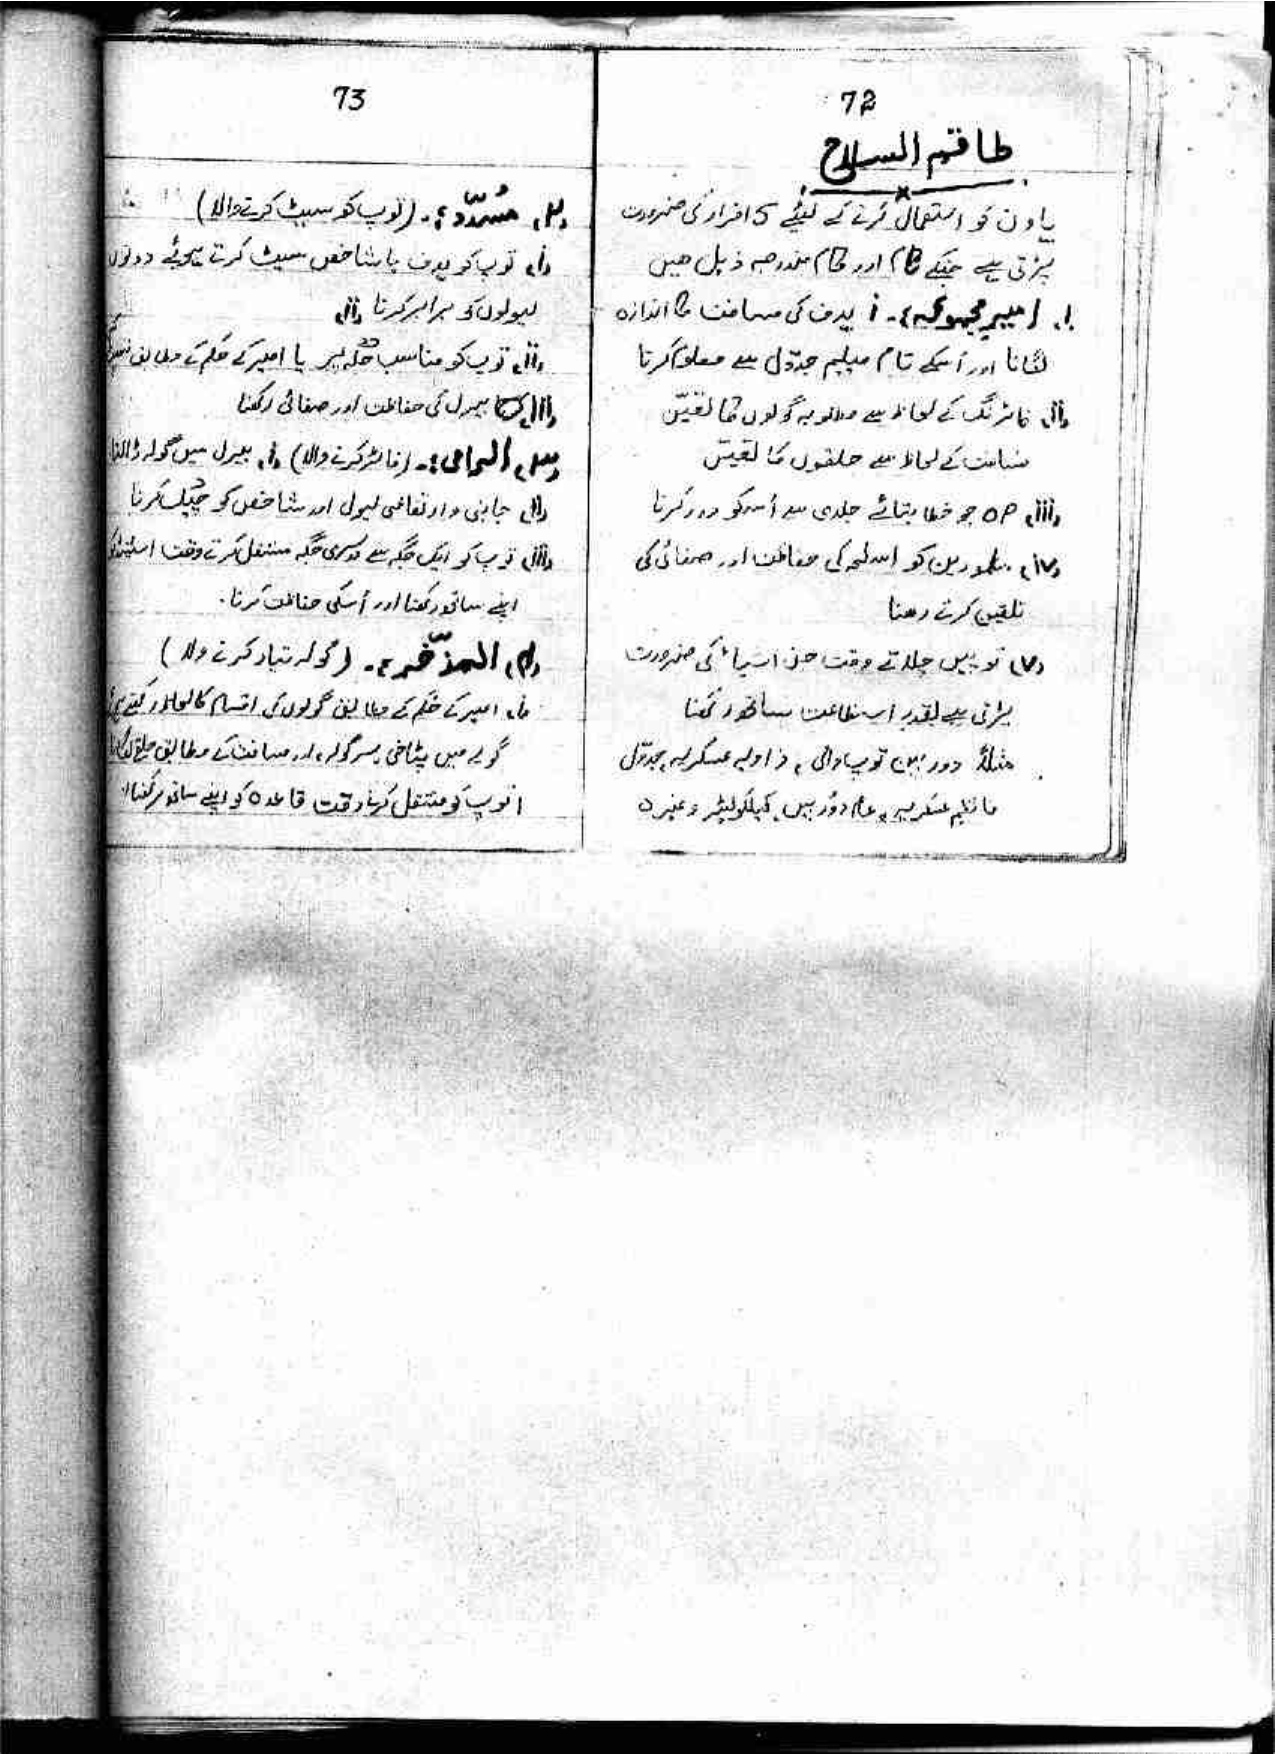 72
طاقم السلاح
ہاون کو استعمال کرنے کے لیئے 5 افراد کی ضرورت
پڑتی ہے جنکے نام اور کام مندرجہ ذیل ھیں
۱. امیر مجموعہ:- i ہدف کی مسافت کا اندازہ
لگانا اور اسکے تمام میلیم جدّول سے معلوم کرنا
(ii) فائرنگ کے لحاظ سے مطلوبہ گولوں کا تعیّن
مسافت کے لحاظ سے حلقوں کا تعیّن
(iii) جو خطا بتائے جلدی سے اُسکو دور کرنا
(iv) مامورین کو اسلحہ کی حفاظت اور صفائی کی
تلقین کرتے رھنا
(v) توپیں چلاتے وقت جن اشیاء کی ضرورت
پڑتی ہے بقدرِ استطاعت ساتھ رکھنا
مثلاً دوربین توپ والی، زاویہ عسکریہ، جدّول
عسکریہ، عام دوربیں، کیلکولیٹر وغیرہ
73
(۲) مُسدّد:- (توپ کو سیٹ کرنے والا)
(i) توپ کو ہدف یا شاخص سیٹ کرتے ہوئے دونوں
لیولوں کو برابر کرنا (ii)
(ii) توپ کو مناسب جگہ پر یا امیر کے حکم کے مطابق
(iii) بیرل کی حفاظت اور صفائی رکھنا
(۳) الرامی:- (فائر کرنے والا) (i) بیرل میں گولہ ڈالنا
(ii) جانبی و ارتفاعی لیول اور شاخص کو چیک کرنا
(iii) توپ کو ایک جگہ سے دوسری جگہ منتقل کرتے وقت
اپنے ساتھ رکھنا اور اُسکی حفاظت کرنا.
(۴) المذخّر:- (گولہ تیار کرنے والا)
(i) امیر کے حکم کے مطابق گولوں کی اقسام کا لحاظ رکھتے
گولے میں پٹاخی، سر گولہ، اور مسافت کے مطابق حلقے
توپ کو منتقل کرتے وقت قاعدہ کو اپنے ساتھ رکھنا